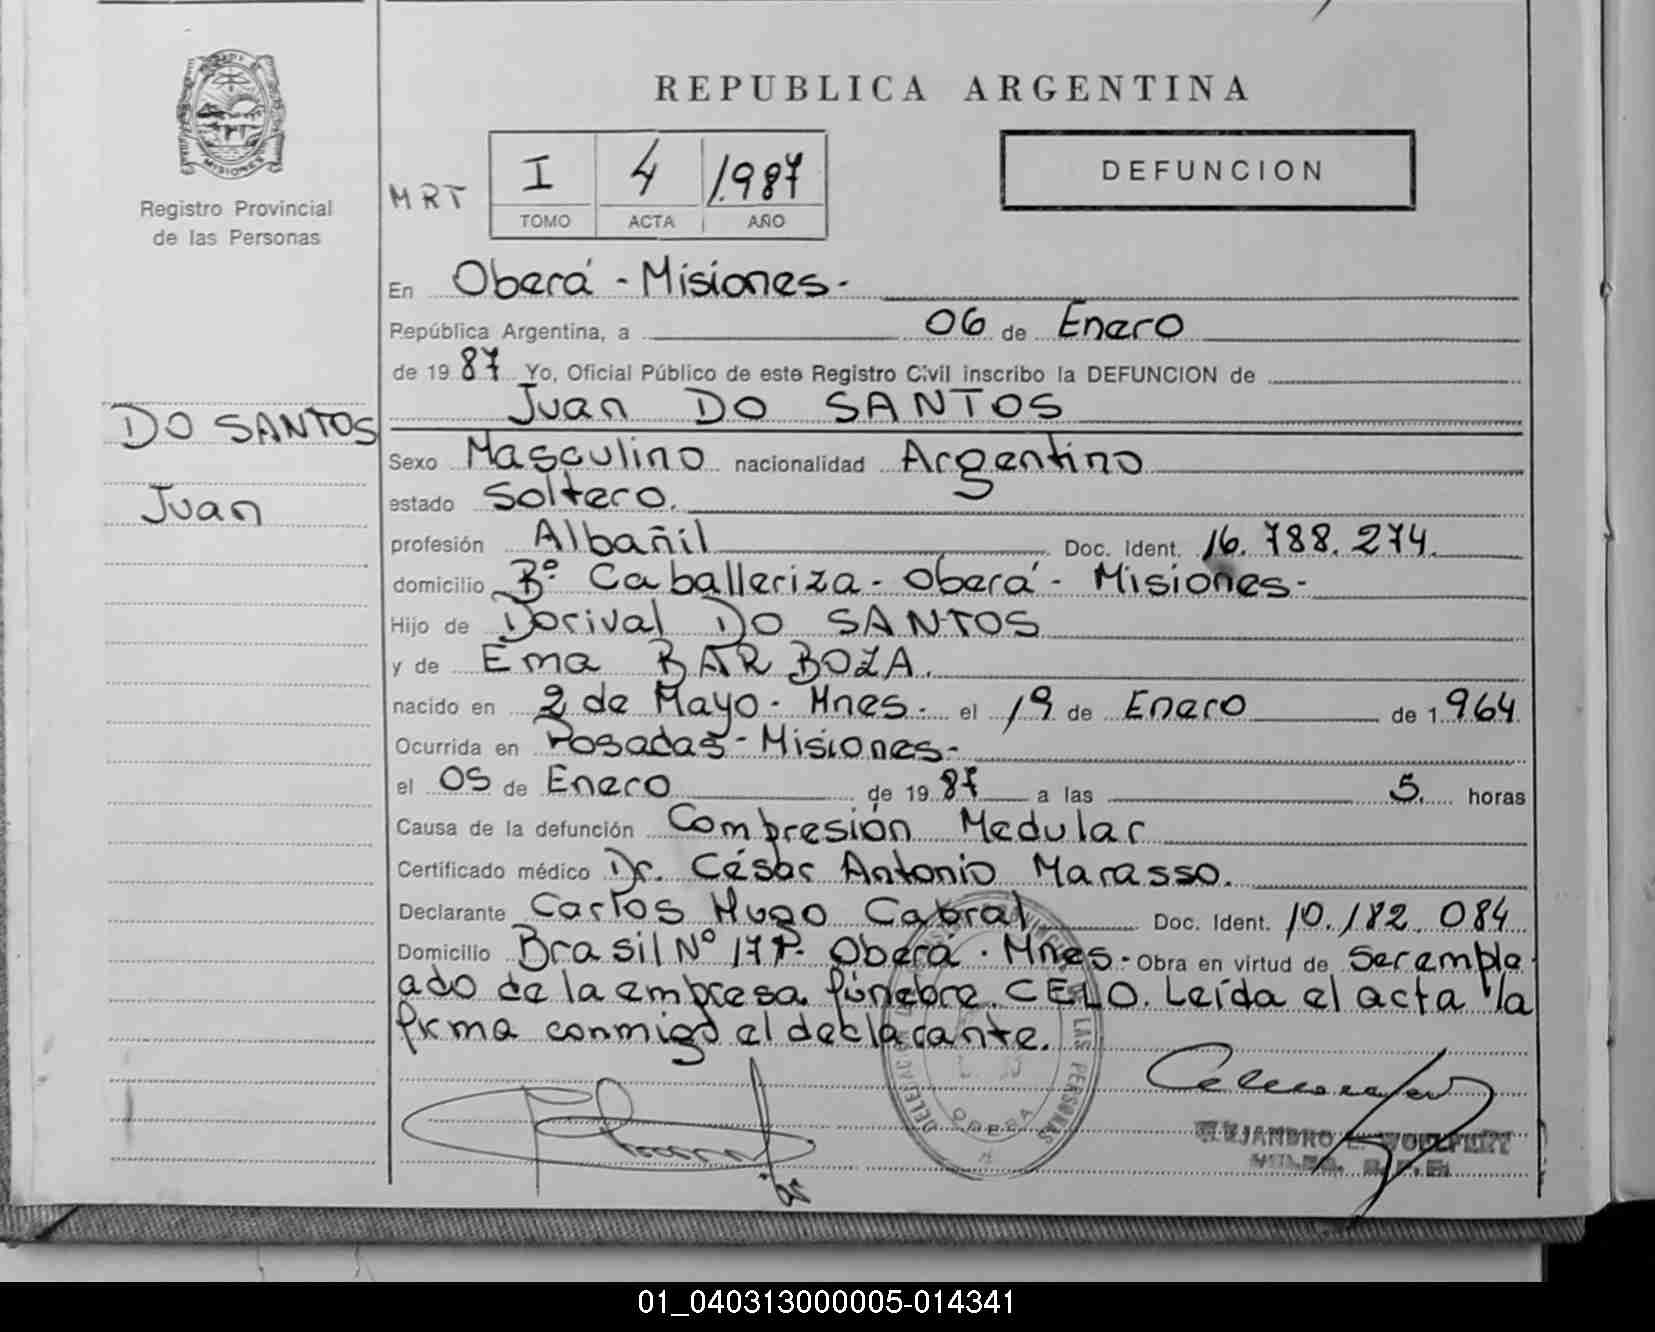 REPUBLICA ARGENTINA
MISIONES
Registro Provincial
de las Personas
MRT
I 4 1.987
TOMO ACTA AÑO
DEFUNCION
DO SANTOS
Juan
En Oberá - Misiones-
República Argentina, a 06 de Enero
de 1987 Yo, Oficial Público de este Registro Civil inscribo la DEFUNCION de
Juan DO SANTOS
Sexo Masculino nacionalidad Argentino
estado Soltero.
profesión Albañil Doc. Ident. 16.788.274.
domicilio Bº Caballeriza - Oberá - Misiones-
Hijo de Dorival DO SANTOS
y de Ema BARBOZA.
nacido en 2 de Mayo - Mnes. el 19 de Enero de 1.964
Ocurrida en Posadas - Misiones-
el 05 de Enero de 1987 a las 5. horas
Causa de la defunción Compresión Medular
Certificado médico Dr. César Antonio Marasso.
Declarante Carlos Hugo Cabral Doc. Ident. 10.182.084
Domicilio Brasil Nº 17 P- Oberá - Mnes- Obra en virtud de ser emple
ado de la empresa fúnebre CELO. Leída el acta la
firma conmigo el declarante.
DELEGACION
LAS PERSONAS
OBERA
01_040313000005-014341